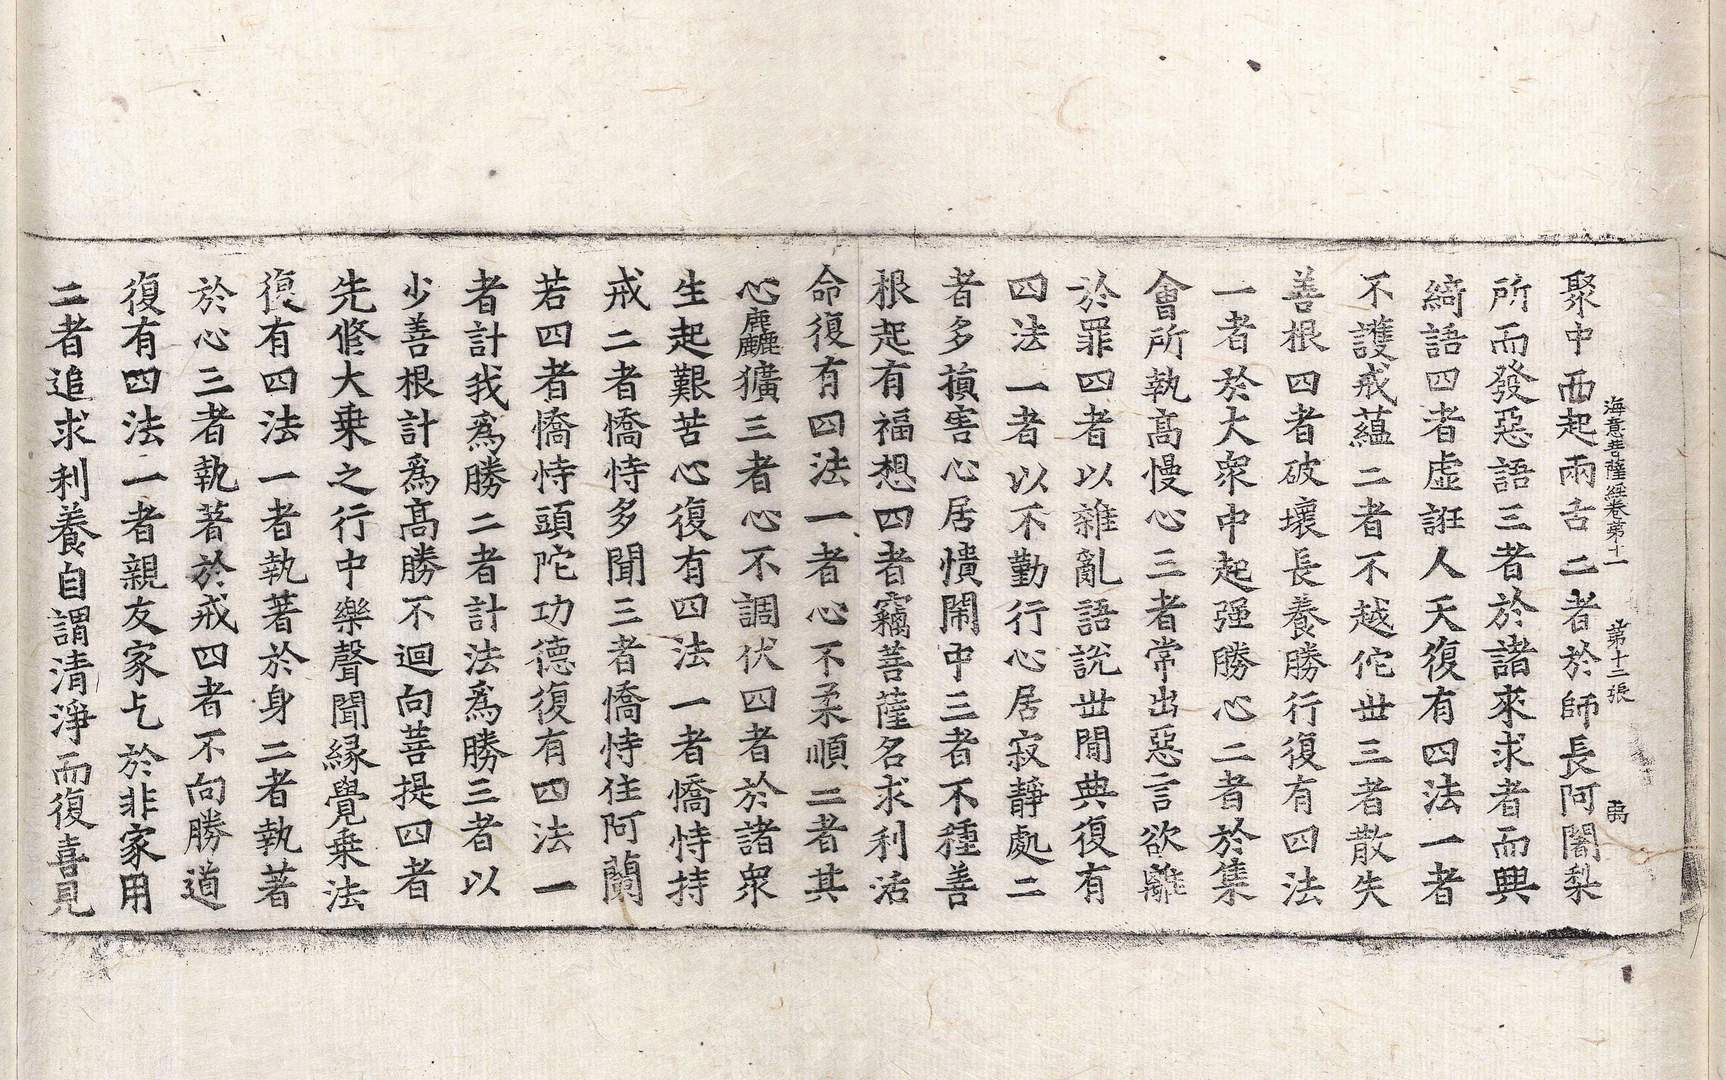 海意菩薩經卷第十一　第十二張　禹
聚中而起兩舌二者於師長阿闍梨
所而發惡語三者於諸來求者而興
綺語四者虛誑人天復有四法一者
不護戒蘊二者不越佗世三者散失
善根四者破壞長養勝行復有四法
一者於大衆中起强勝心二者於集
會所執高慢心三者常出惡言欲離
於罪四者以雜亂語說世間典復有
四法一者以不勤行心居寂靜處二
者多損害心居憒閙中三者不種善
根起有福想四者竊菩薩名求利活
命復有四法一者心不柔順二者其
心麤獷三者心不調伏四者於諸衆
生起艱苦心復有四法一者憍恃持
戒二者憍恃多聞三者憍恃住阿蘭
若四者憍恃頭陀功德復有四法一
者計我爲勝二者計法爲勝三者以
少善根計爲高勝不迴向菩提四者
先修大乗之行中樂聲聞緣覺乗法
復有四法一者執著於身二者執著
於心三者執著於戒四者不向勝道
復有四法一者親友家乞於非家用
二者追求利養自謂清淨而復喜見